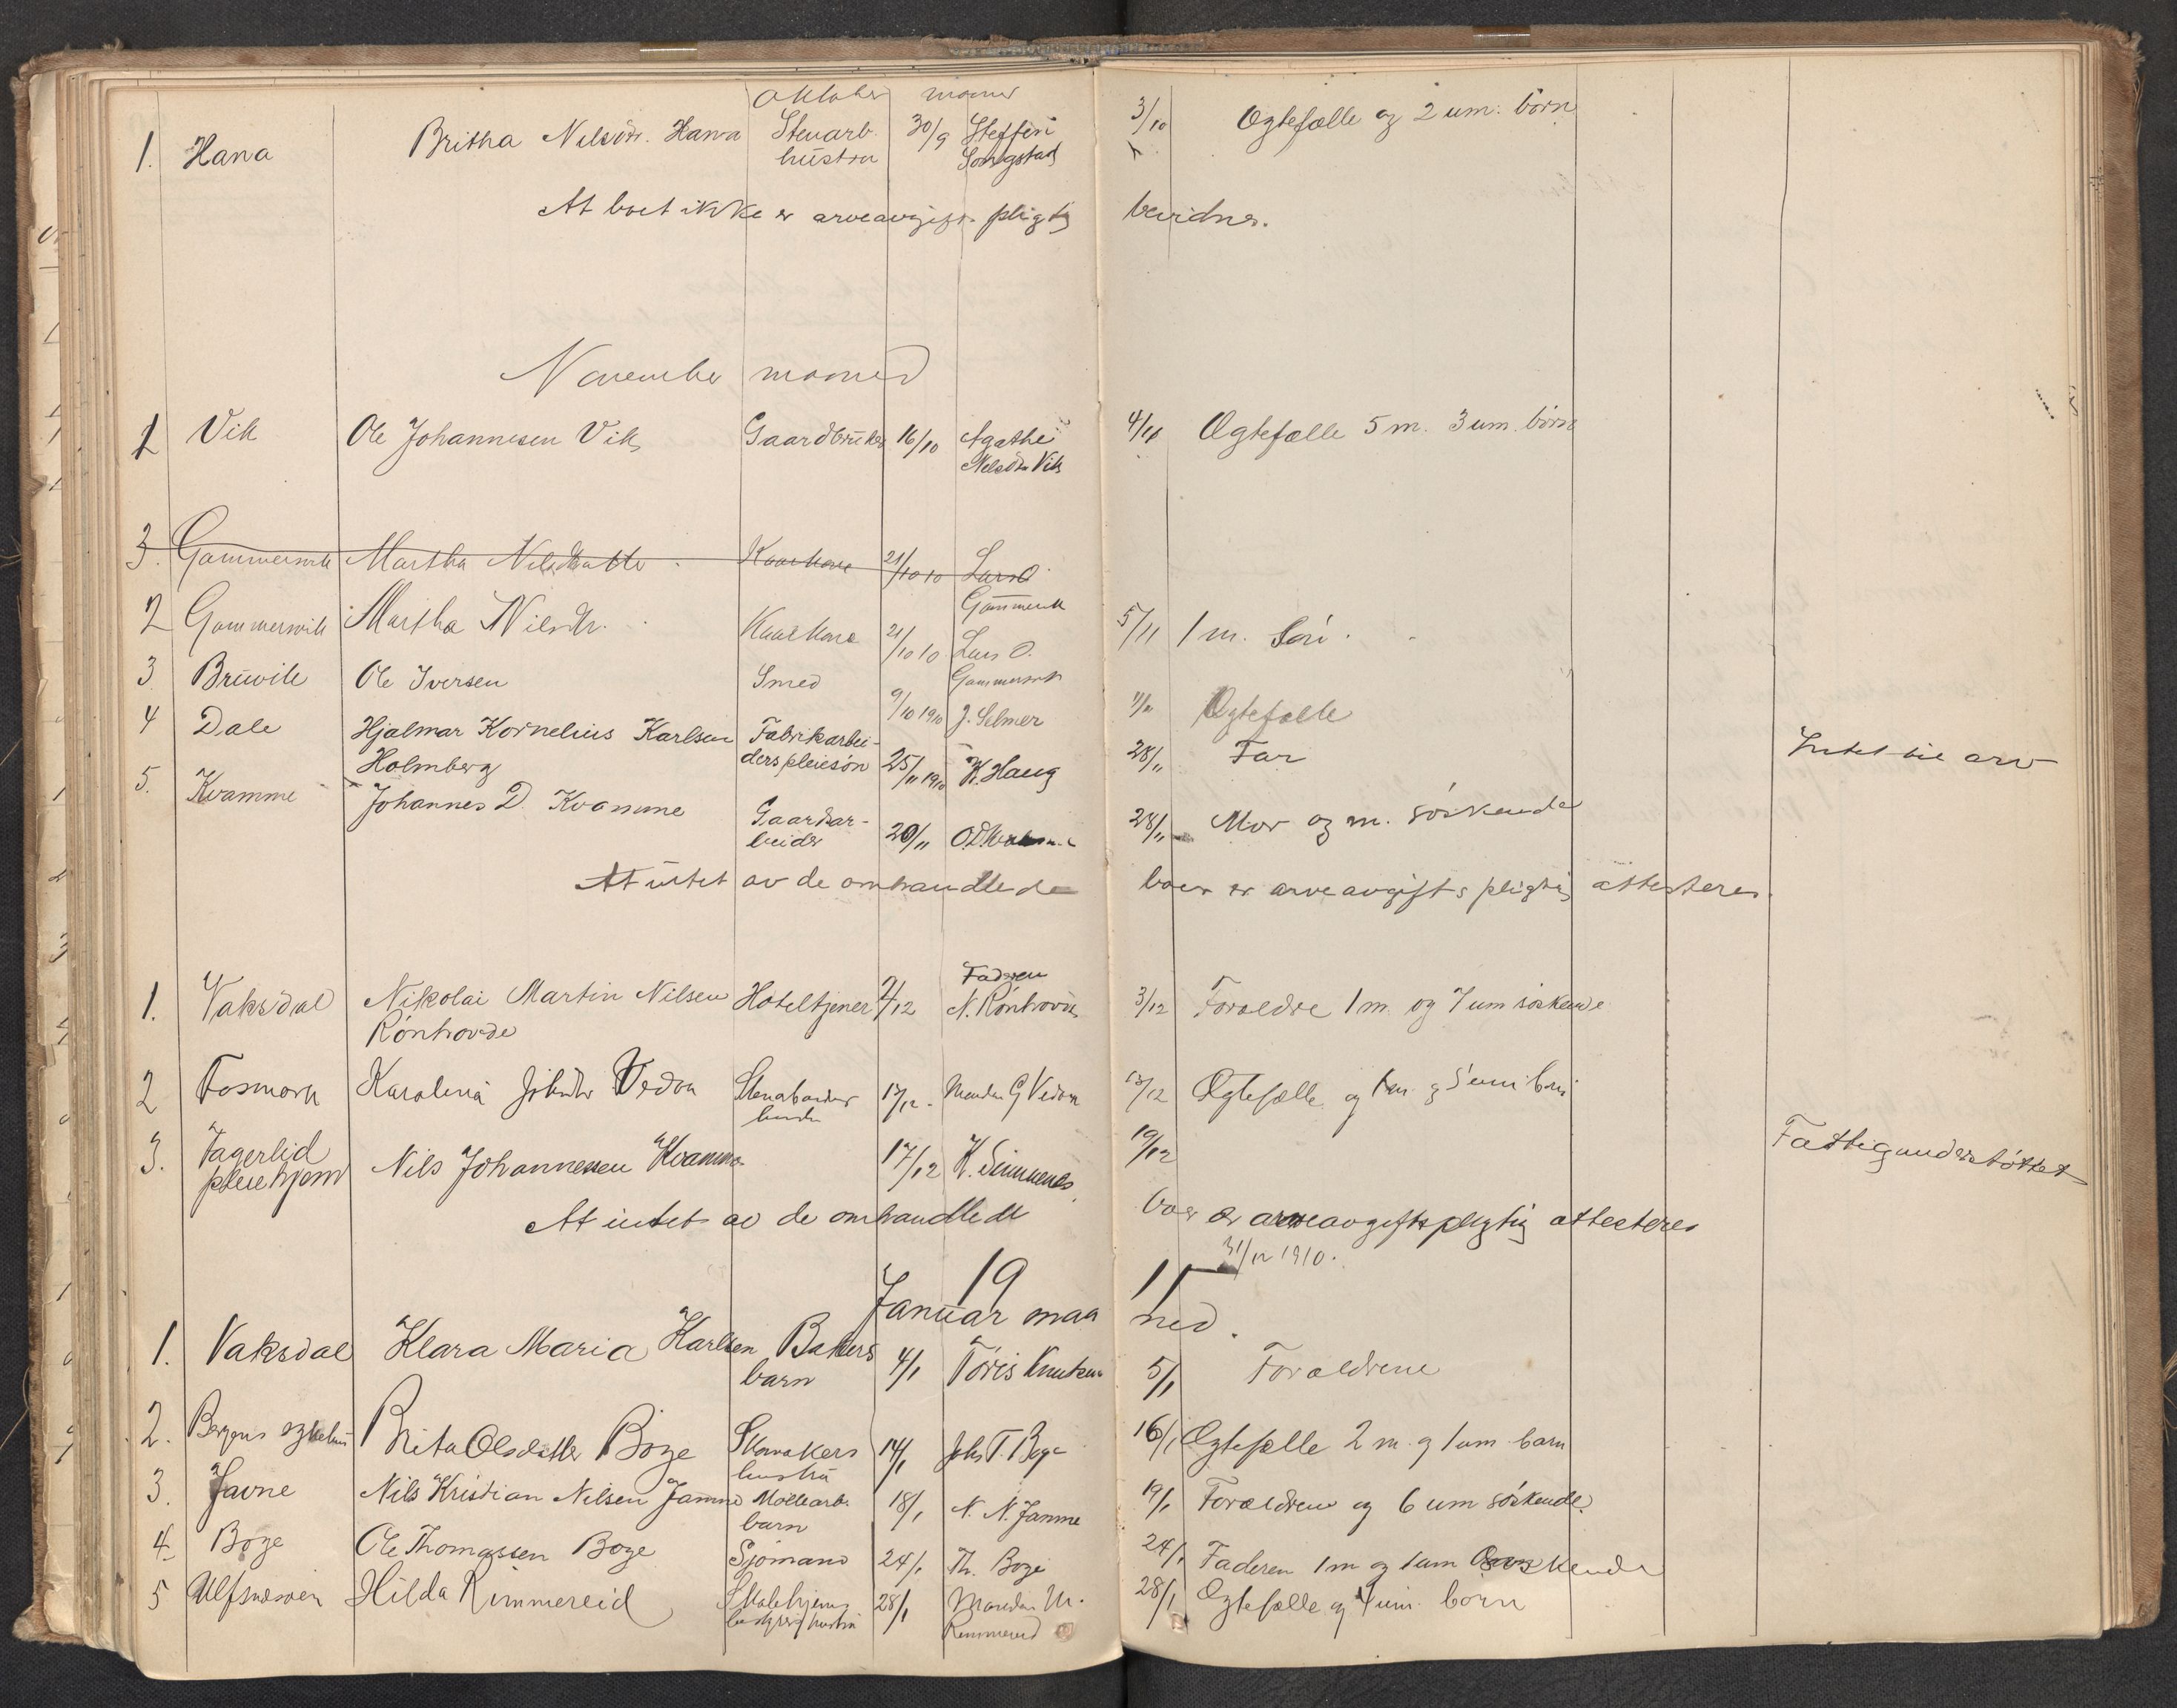 Oktober maaned
1. Hana Britha Nilsdtr. Hana Stenarb. 30/9 Steffen 3/10 Ægtefælle og 2 um. börn
hustru Songstad
At boet ikke er arveavgifts pligtig bevidnes.
November maaned
1 Vik Ole Johannesen Vik Gaardbruker 16/10 Agathe 4/11 Ægtefælle 5 m. 3 um. börn
Nilsdtr Vik
3. Gammersvik Martha Nilsdatter Kaarkone 21/10 10 Lars O.
Gammersvik
2 Gammersvik Martha Nilsdtr. Kaarkone 21/10 10 Lars O. 5/11 1 m. Sön.
Gammersvik
3 Bruvik Ole Iversen Smed 9/10 1910 J. Selmer Ægtefælle
4 Dale Hjalmar Kornelius Karlsen Fabrikarbei- 25/11 1910 K. Haug 28/11 Far Intet til arv
Holmberg ders pleiesön
5. Kvamme Johannes D. Kvamme Gaardar- 20/11 28/11 Mor og m. söskende
beider
At intet av de omhandlede boer er arveavgifts pligtig attesteres.
Faderen
1. Vaksdal Nikolai Martin Nilsen Hoteltjener 2/12 N. Rönhovde 3/12 Foreldre 1 m. og 7 um söskende
Rönhovde
2 Fosmork Karolina Vedaa 12/12 Manden G Vedaa 13/12 Ægtefælle og 1 m. og 5 um börn
3. Fagerlid Nils Johannessen Kvamme 17/12 K. Simmenes 19/12 Fattigunderstöttet
pleiehjem
At intet av de omhandlede boer er arveavgiftspligtig attesteres
31/12 1910.
1911
Januar maaned.
1. Vaksdal Klara Maria Karlsen Bakers 4/1 Töris Knutsen 5/1 Forældrene
barn
2. Bergens sykehus Brita Olsdatter Boge Skomakers 14/1 Johs T. Boge 16/1 Ægtefælle 2 m. og 1 um. barn
hustru
3. Javne Nils Kristian Nilsen Jamne Möllearb. 18/1 N. N. Jamne 19/1 Forældrene og 6 um söskende
barn
4. Boge Ole Thomassen Boge Sjömand 24/1 Th. Boge 24/1 Faderen 1 m og 1 um söskende
5 Hilda Rimmereid 28/1 Manden M. 28/1 Ægtefælle og 4 um. börn
hustru Rimmereid